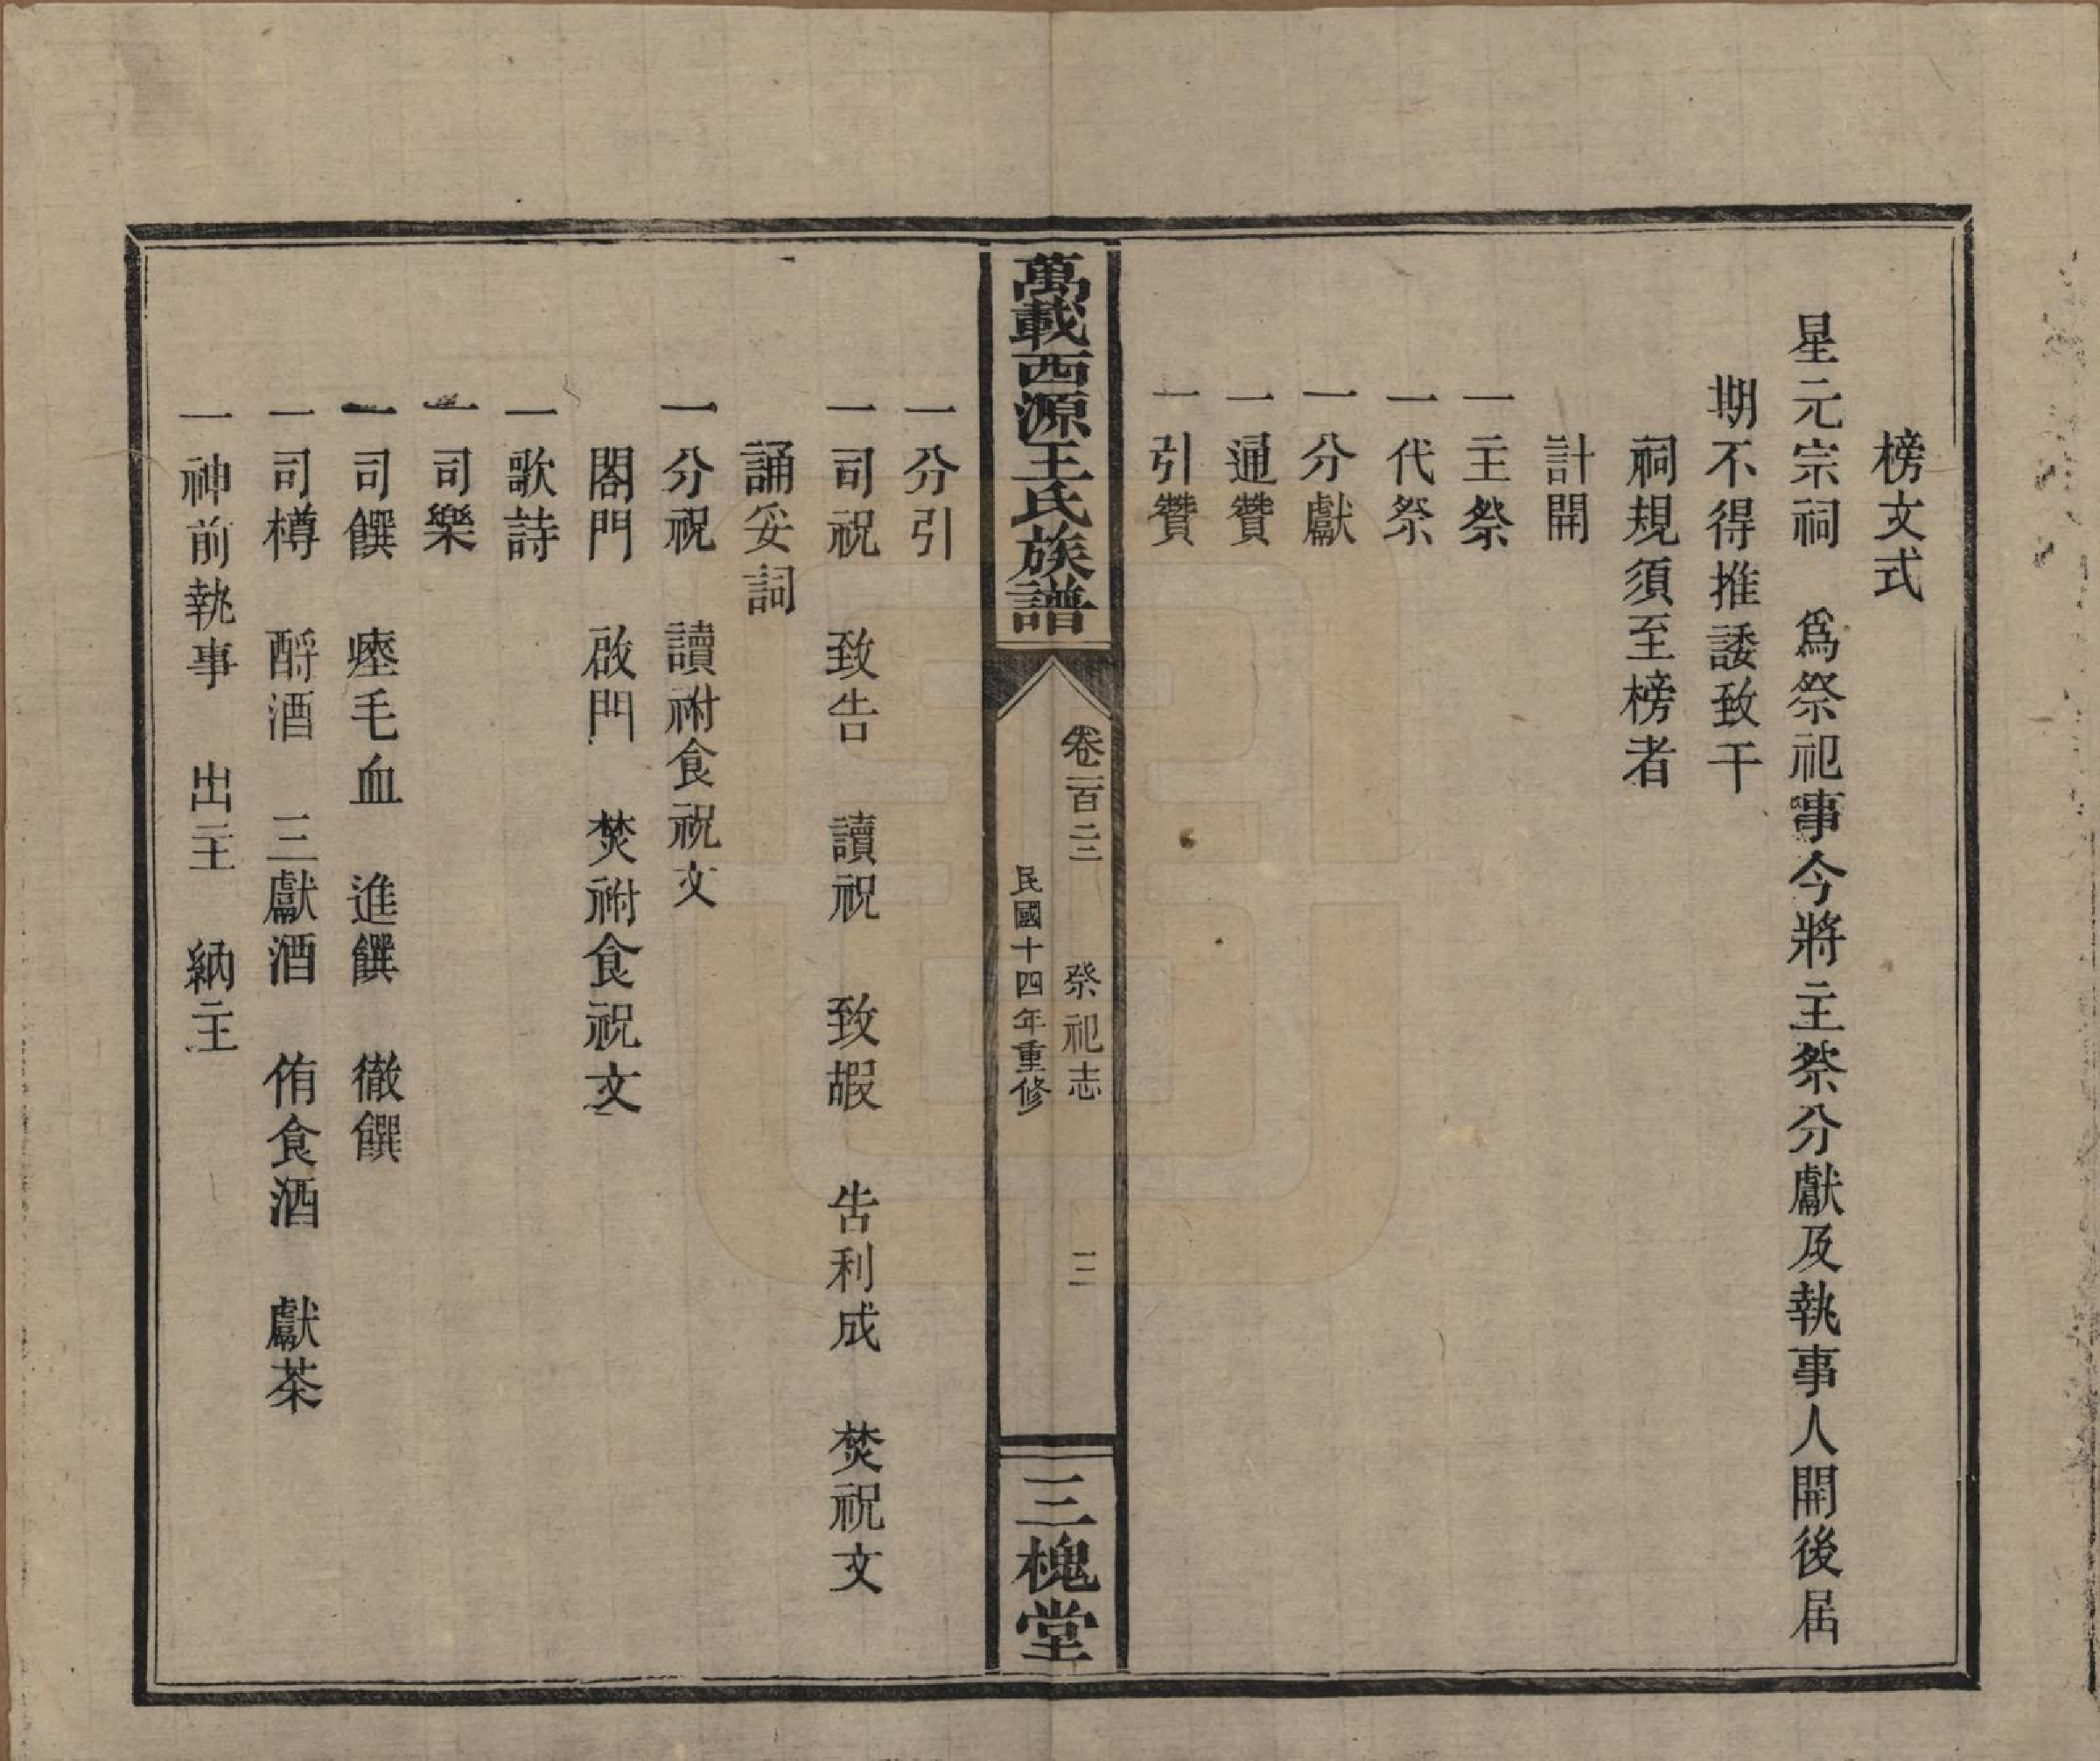 榜文式
星元宗祠　爲祭祀事今將主祭分獻及執事人開後屆
期不得推諉致干
祠規須至榜者
計開
一主祭
一代祭
一分獻
一通贊
一引贊
萬載西源王氏族譜
卷一百二三　祭祀志　三
民國十四年重修
三槐堂
一分引
一司祝　致告　讀祝　致嘏　告利成　焚祝文
誦妥詞
一分祝　讀祔食祝文
閤門　啟門　焚祔食祝文
一歌詩
一司樂
一司饌　瘞毛血　進饌　徹饌
一司樽　酹酒　三獻酒　侑食酒　獻茶
一神前執事　出主　納主